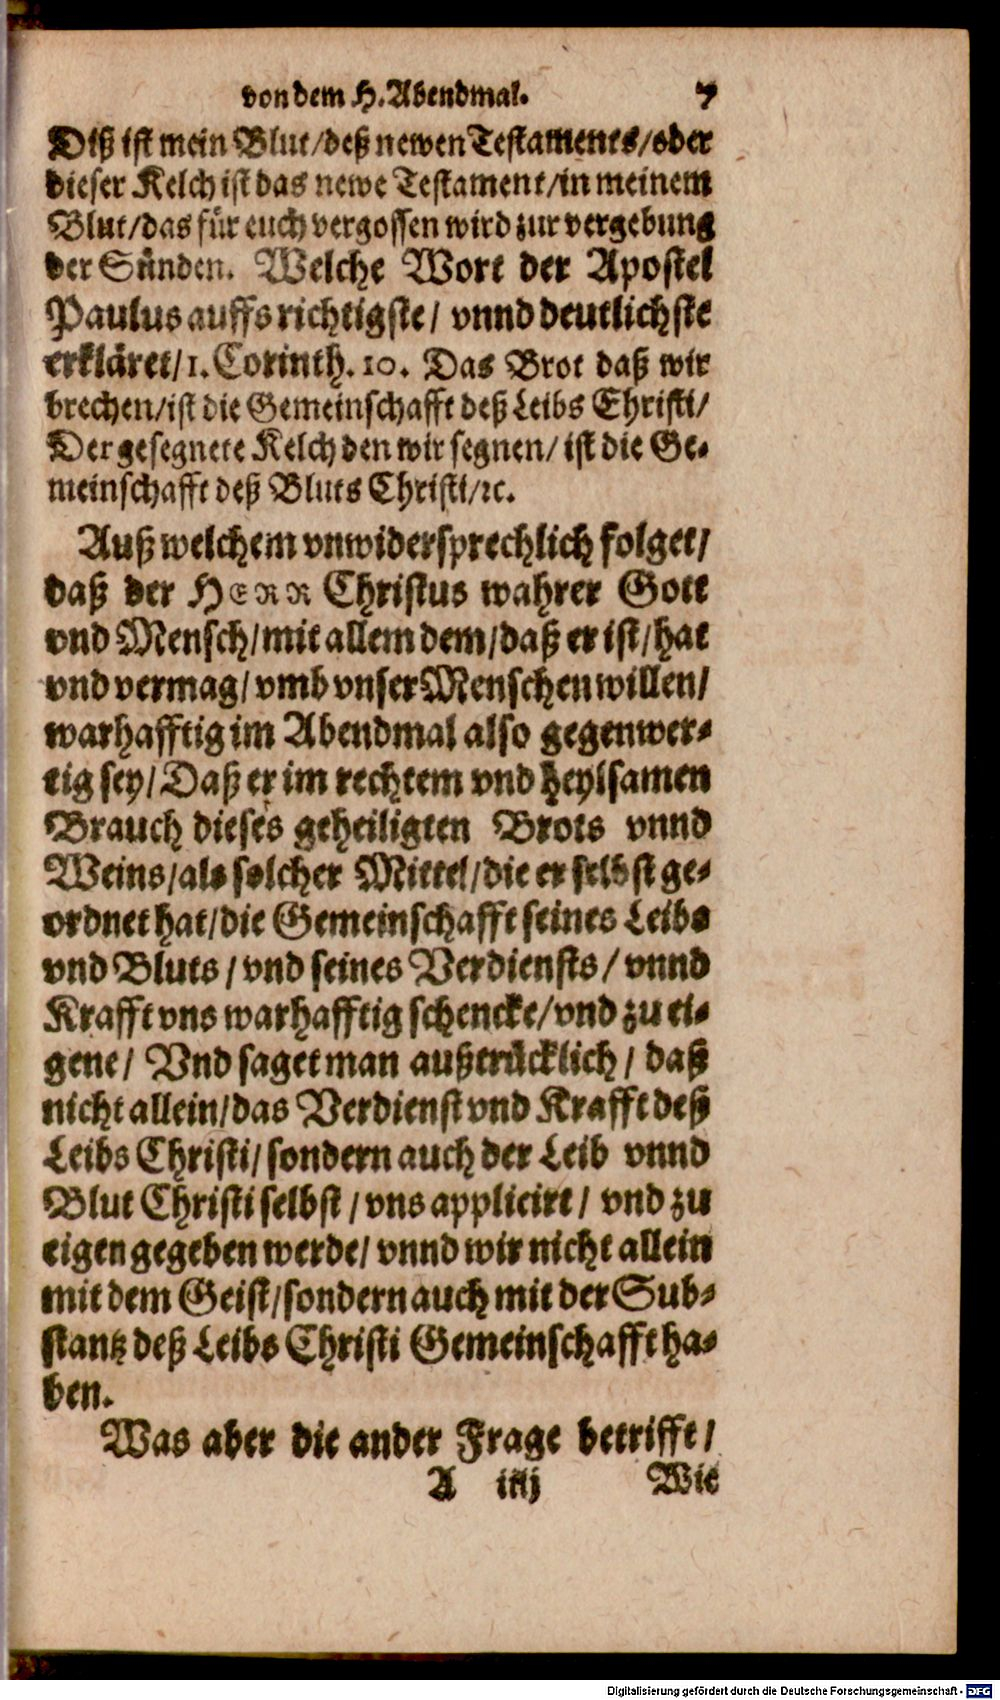 von dem H. Abendmal. 7
Diß ist mein Blut/deß newen Testamentes/oder
dieser Kelch ist das newe Testament/in meinem
Blut/das für euch vergossen wird zur vergebung
der Sünden. Welche Wort der Apostel
Paulus auffs richtigste/ vnnd deutlichste
erkläret/1. Corinth. 10. Das Brot daß wir
brechen/ist die Gemeinschafft deß Leibs Christi/
Der gesegnete Kelch den wir segnen/ ist die Ge-
meinschafft deß Bluts Christi/ꝛc.
Auß welchem vnwidersprechlich folget/
daß der HERR Christus wahrer Gott
vnd Mensch/mit allem dem/daß er ist/hat
vnd vermag/ vmb vnser Menschen willen/
warhafftig im Abendmal also gegenwer-
tig sey/ Daß er im rechtem vnd heylsamen
Brauch dieses geheiligten Brots vnnd
Weins/als solcher Mittel/die er selbst ge-
ordnet hat/die Gemeinschafft seines Leibs
vnd Bluts/ vnd seines Verdiensts/ vnnd
Krafft vns warhafftig schencke/vnd zu ei-
gene/ Vnd saget man außtrücklich/ daß
nicht allein/das Verdienst vnd Krafft deß
Leibs Christi/sondern auch der Leib vnnd
Blut Christi selbst/vns applicirt/ vnd zu
eigen gegeben werde/ vnnd wir nicht allein
mit dem Geist/sondern auch mit der Sub-
stantz deß Leibs Christi Gemeinschafft ha-
ben.
Was aber die ander Frage betrifft/
A iiij Wie
Digitalisierung gefördert durch die Deutsche Forschungsgemeinschaft - DFG